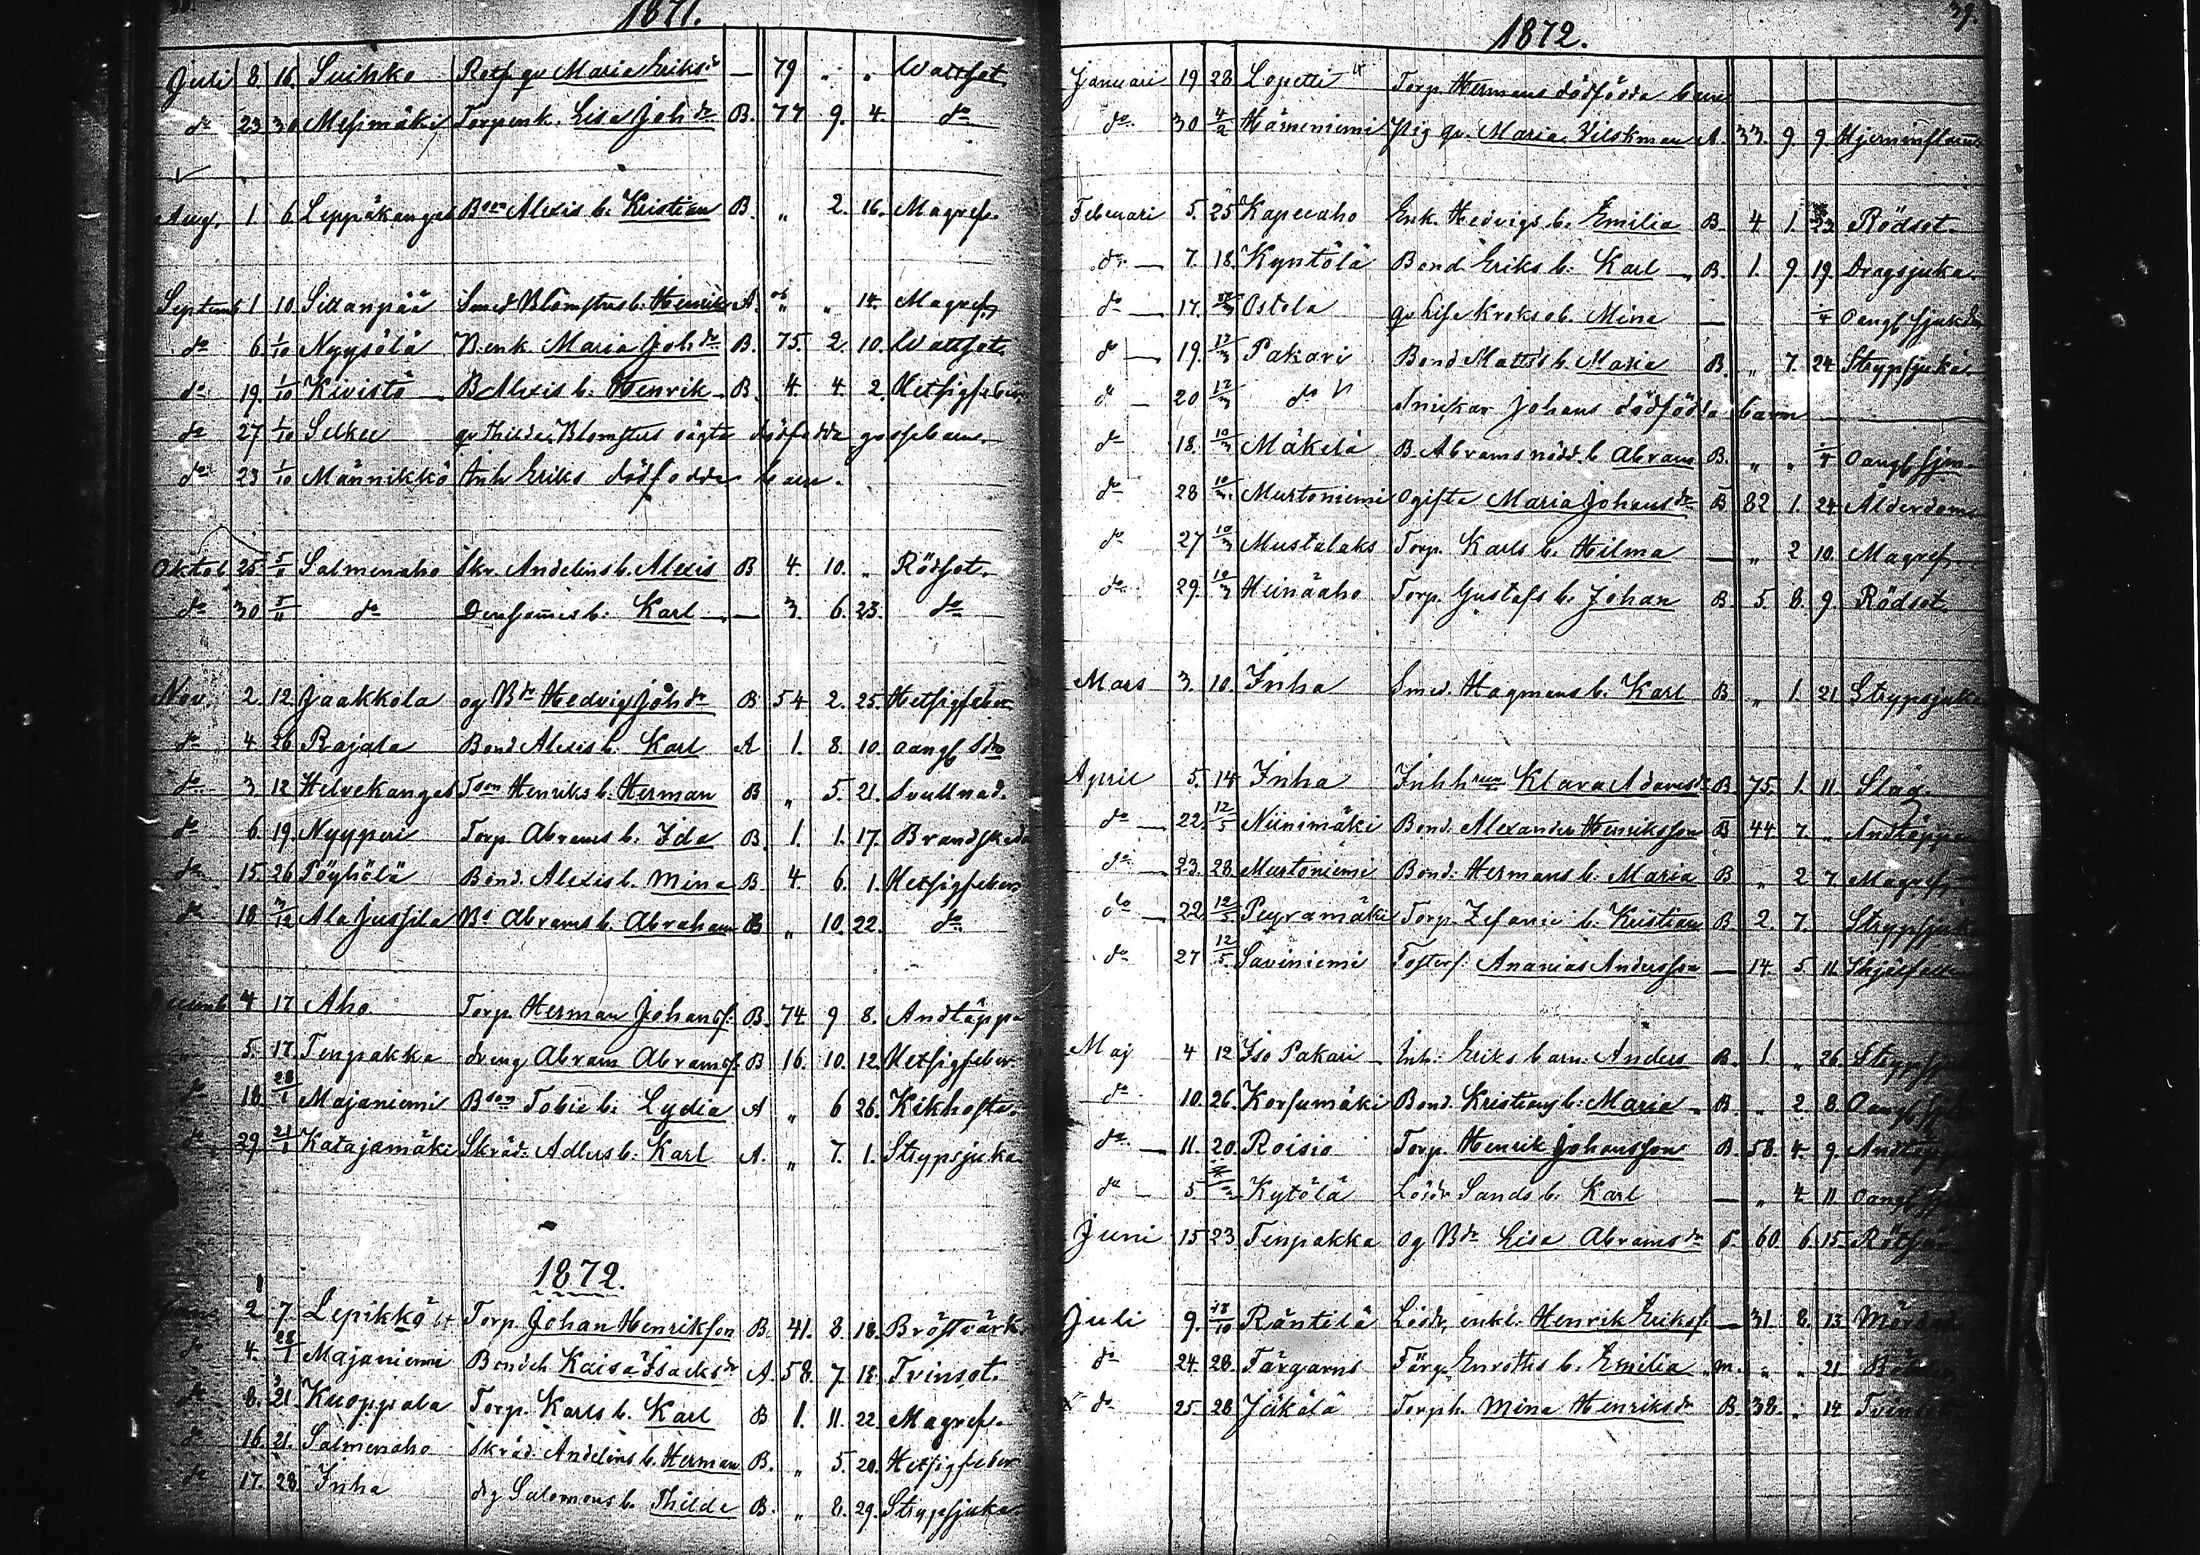 1871.
Juli 8. 16. Suikko Rotf. qv Maria Eriksdr — 79 „ „ Wattsot
do 23 30 Messimäki Torpenk. Lisa Johdr B. 77 9. 4. do
Aug. 1 6 Leppäkangas Bson Alexis b. Kristian B. „ 2. 16. Magref.
Septemb 1 10. Sillanpää Smed Blomstus b. Henrik A. „ „ 14. Magref
do 6. 1/10 Nyysölä B.enk Maria Johdr B. 75. 2. 10. Wattsot.
do 19. 1/10 Kivistö B Alexis b. Henrik B. 4. 4. 2. Hetsigfeber
do 27 1/10 Selkee qv Thilda Blomstus oägta dödfödda gossebarn.
do 23 1/10 Männikkö Inh Eriks dödfödda barn.
Oktob. 25 5/11 Salmenaho Skr. Andelins b. Alexis B 4. 10. „ Rödsot.
do 30 5/11 do Densammes b. Karl — 3. 6. 23. do
Nov. 2. 12 Jaakkola og Bdr Hedvig Johdr B 54 2. 25. Hetsigfeber
do 4. 26 Rajala Bond Alexis b. Karl A 1. 8. 10. oangf. sdo
do 3 12 Hetvekangas Tson Henriks b. Herman B „ 5. 21. Svullnad.
do 6. 19. Nyyperi Torp. Abrams b. Ida B. 1. 1. 17. Brandskada
do 15. 26 Pöyhölä Bond. Alexis b. Mina B 4. 6. 1. Hetsigfeber
do 18 3/12 Ala Jussila Bd Abrams b. Abraham B „ 10. 22. do
Decemb. 4 17 Aho Torp. Herman Johansf. B. 74 9 8. Andtäppa
5. 17. Tenpakka dreng Abram Abramsf. B 16. 10. 12. Hetsigfeber.
do 18. 28/1 Majaniemi Bson Tobie b. Lydia A „ 6 26. Kikhosta.
do 29. 21/1 Katajamäki Skräd. Adlers b. Karl A. „ 7. 1. Strypsjuka
1872.
2 7. Lepikkö Torp. Johan Henriksson B. 41. 8. 18. Bröstvärk.
do 4. 28/1 Majaniemi Bondeh Kaisa Isacksdr A. 58. 7. 18. Tvinsot.
do 8. 21. Kuoppala Torp. Karls b. Karl B 1. 11. 22. Magref.
do 16. 21. Salmenaho Skräd. Andelins b. Herman B. „ 5. 20. Hetsigfeber
do 17. 28. Inha drg Salomons b. Thilda B. „ 8. 29. Strypsjuka.
39.
1872.
Januari 19 28 Lopetti Torp. Hermans dödfödda barn
do 30 4/2 Hämeniemi Pig qv. Maria Vilskman A 33. 9. 9. Hjerninflam
Februari 5. 25 Kapeeaho Enk. Hedvigs b. Emilia B. 4. 1. 23. Rödsot.
do 7. 18. Kyntölä Bond. Eriks b: Karl B. 1. 9. 19. Dragsjuka.
do 17. Ostola qv Lisa Kroks ob. Mina — 1/4 Oangf. sjukdm
do 19. 12/3 Pakari Bond Matts b. Maria B. „ 7. 24 Strypsjuka
do 20 12/3 do Snickar Johans dödfödda barn
do 18. 10/3 Mäkelä B. Abrams nödd. b Abram B. „ „ 1/4 Oangf. sjm.
do 28 10/3 Murtoniemi Ogifta Maria Johansdr B 82 1. 24 Alderdom
do 27 10/3 Mustalaks Torp. Karls b. Hilma — „ 2 10. Magref.
do 29. 10/3 Heinäaho Torp. Gustafs b. Johan B. 5. 8. 9. Rödsot.
Mars 3. 10. Inha Smed. Hagmans b. Karl B „ 1. 21. Strypsjuk
April 5. 14 Inha Inhh Klara Adamsdr B. 75. 1. 11. Slag.
do 22 12/5 Niinimäki Bond. Alexander Henriksson B 44 7. „ Andtäppa
do 23. 28. Murtoniemi Bond: Hermans b: Maria B „ 2 7. Magref.
do 22 12/5 Peuramäki Torp. Zefanie b. Kristian B 2. 7. Strypsjuk
do 27 12/5. Saviniemi Fosterf: Ananias Andersson — 14. 5 11
Maj 4 12 Iso Pakari Inh: Eriks barn Anders B 1 „ 26. Strypsj
do 10. 26. Korsumäki Bond Kristians b: Maria B. „ 2 8. Oangf. sj
do 11. 20. Roisio Torp. Henrik Johansson B. 58. 4. 9. Andtäpp
do 5 Kytölä Lösdr Sands b: Karl — „ 4. 11. oangf. sj
Juni 15 23. Tenpakka og Bdr Lisa Abramsdr 60. 6. 15.
Juli 9. 18/10 Räntilä Lösdr, enkl. Henrik Eriksf. — 31. 8. 13
do 24. 28. Färgarns Färg. Enroths b. Emilia m. „ „ 21.
do 25. 28 Jäkälä Torph. Mina Henriksdr B. 38. „ 14 Tvinsot.